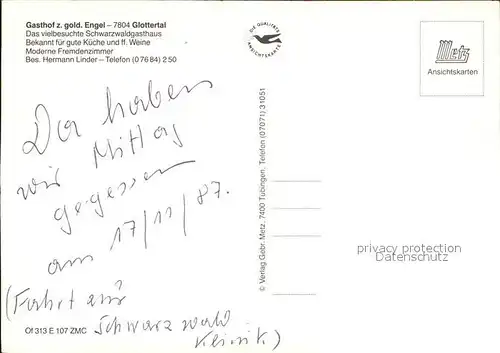 Gasthof z. gold. Engel – 7804 Glottertal
Das vielbesuchte Schwarzwaldgasthaus
Bekannt für gute Küche und ff. Weine
Moderne Fremdenzimmer
Bes. Hermann Linder – Telefon (0 76 84) 2 50
DIE QUALITÄTS
ANSICHTSKARTE
Metz
Ansichtskarten
Da haben
wir Mittag
gegessen
am 17/11/87.
(Fahrt zur
Schwarzwald
Klinik)
© Verlag Gebr. Metz, 7400 Tübingen, Telefon (07071) 31051
privacy protection
Datenschutz
Of 313 E 107 ZMC